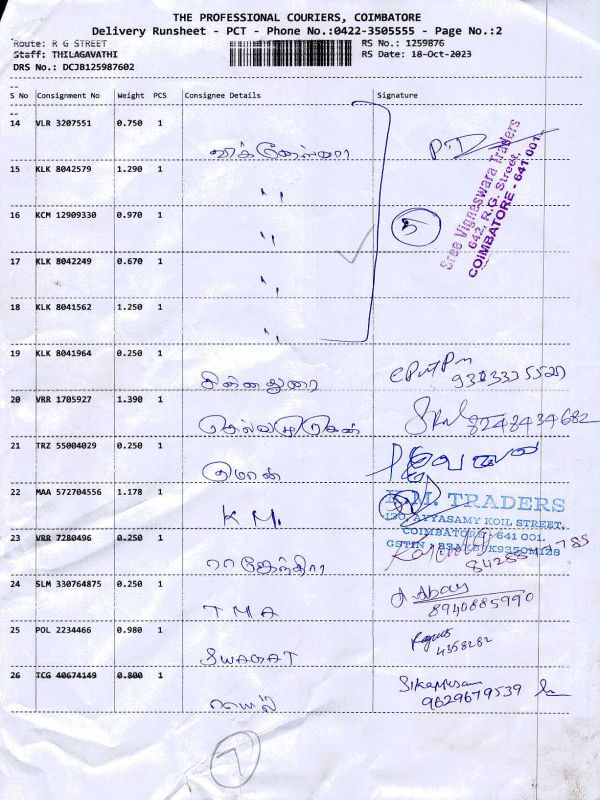 THE PROFESSIONAL COURIERS, COIMBATORE
Delivery Runsheet - PCT - Phone No.:0422-3505555 - Page No.:2
Route: R G STREET RS No.: 1259876
Staff: THILAGAVATHI RS Date: 18-Oct-2023
DRS No.: DCJB125987602
S No Consignment No Weight PCS Consignee Details Signature
14 VLR 3207551 0.750 1
Sree Vigneswara Traders
642, R.G. Street,
COIMBATORE - 641 001.
15 KLK 8042579 1.290 1
"
16 KCM 12909330 0.970 1
" 5
17 KLK 8042249 0.670 1
"
18 KLK 8041562 1.250 1
"
19 KLK 8041964 0.250 1
சின்னதுரை
20 VRR 1705927 1.390 1
செல்வமுருகன் 8248434682
21 TRZ 55004029 0.250 1
22 MAA 572704556 1.178 1
K M. K.M. TRADERS
130, AYYASAMY KOIL STREET,
COIMBATORE - 641 001.
23 VRR 7280496 0.250 1
ராஜேந்திரா
24 SLM 330764875 0.250 1
T M A A. Abay
8940885990
25 POL 2234466 0.980 1
4358282
26 TCG 40674149 0.800 1
9629679539
7